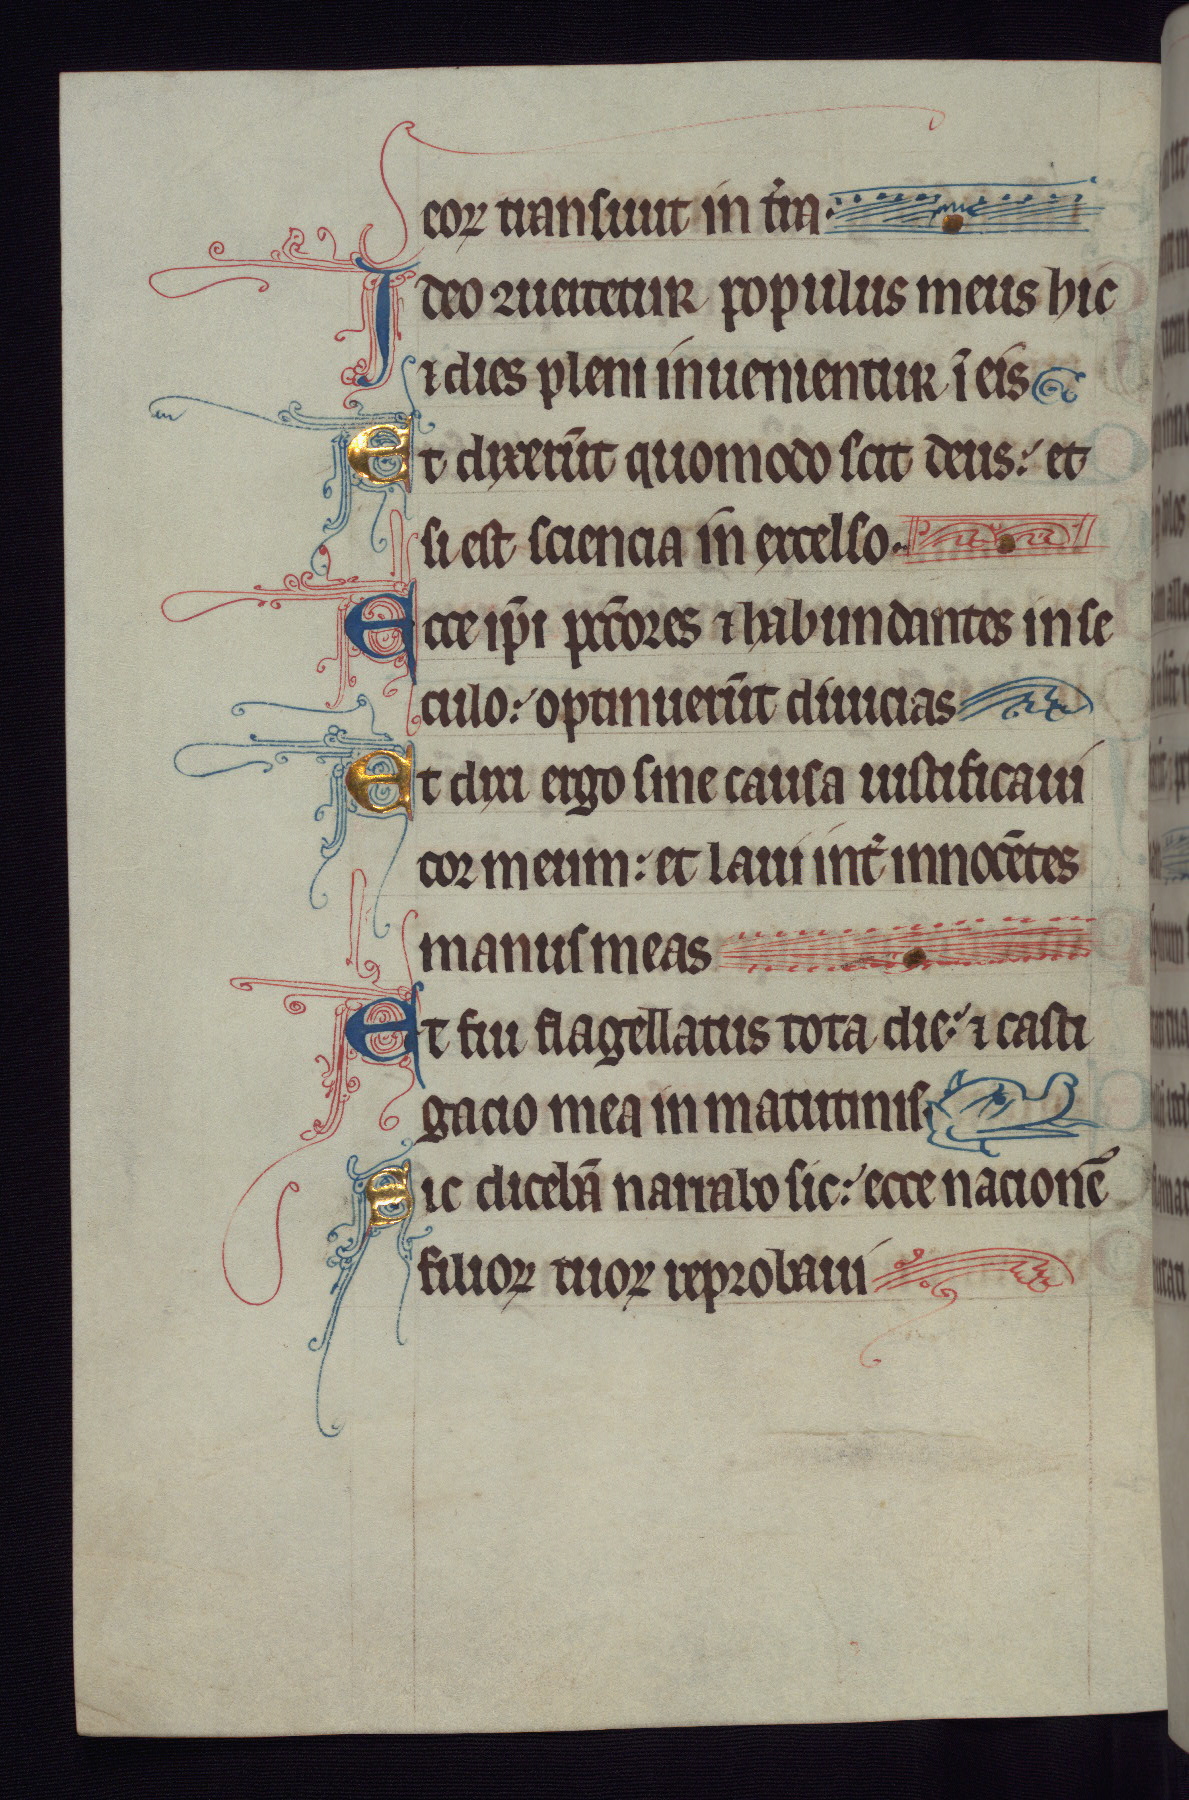 eoꝝ transiuit in t̉ra.
Ideo ꝯuertetur populus meus hic
⁊ dies pleni inuenientur ī eis
Et dixerūt quomodo scit deus: et
si est sciencia in excelso.
Ecce ip̄i pecc̄ores ⁊ habundantes in se
culo: optinuerūt diuicias
Et dixi ergo sine causa iustificaui
cor meum: et laui int̉ innocētes
manus meas
Et fui flagellatus tota die: ⁊ casti
gacio mea in matutinis.
Sic dicebā narrabo sic: ecce nacionē
filioꝝ tuoꝝ reprobaui